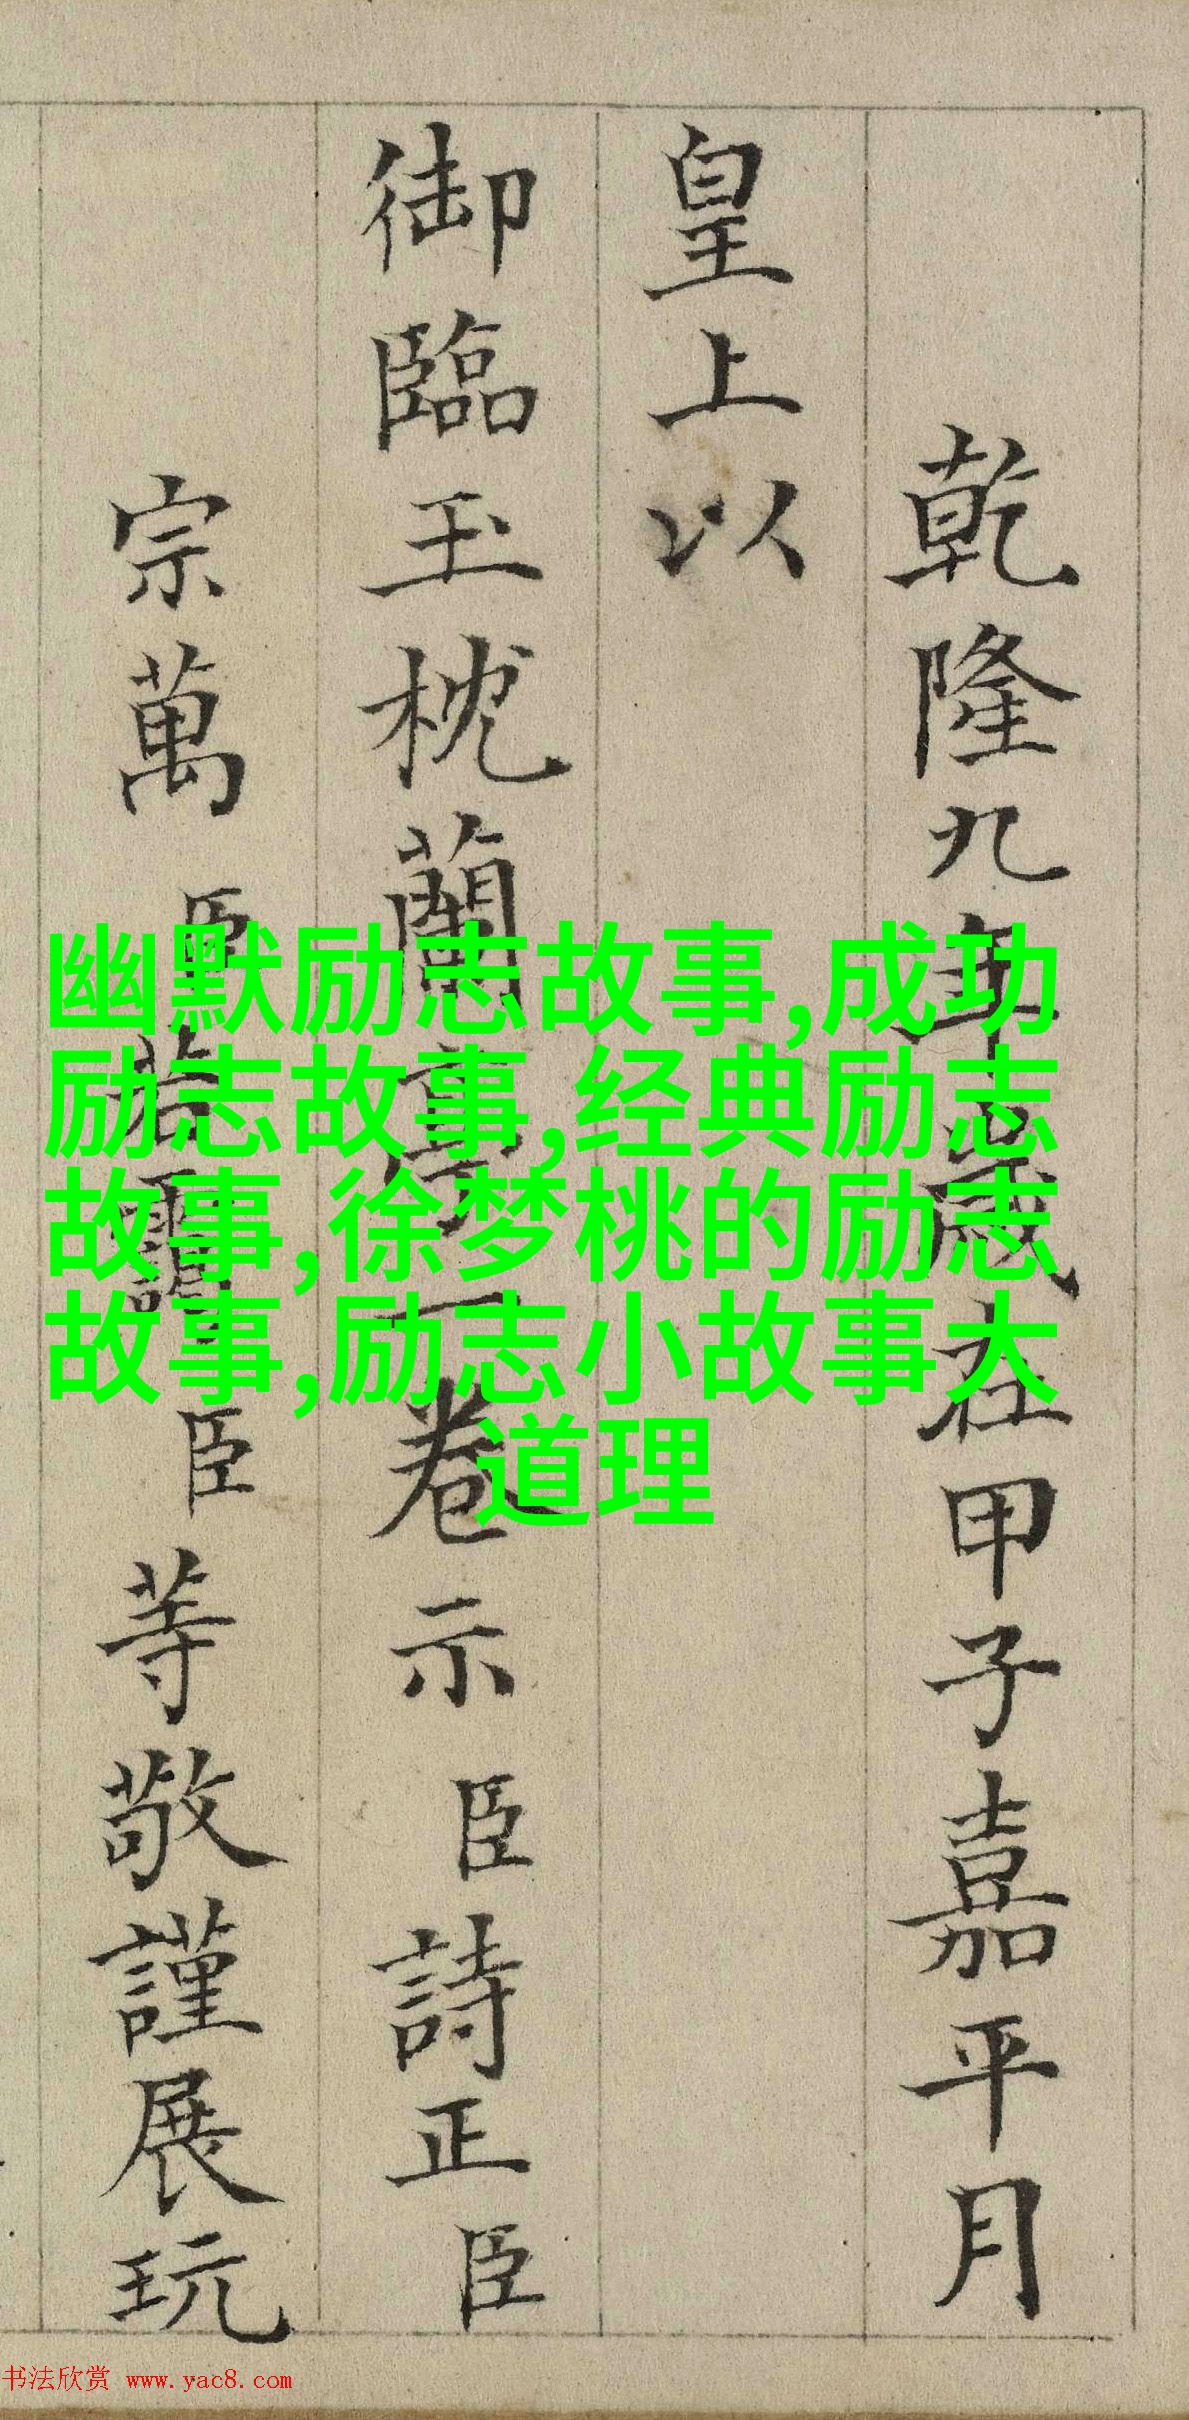 乾隆九年歲在甲子嘉平月
皇上以
御臨玉枕蘭亭一卷示臣詩正臣
宗萬臣若靄臣等敬謹展玩
幽默励志故事,成功
励志故事,经典励志
故事,徐梦桃的励志
故事,励志小故事大
道理
书法欣赏 www.yac8.com